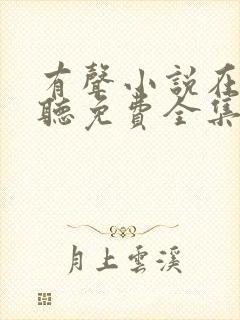 有聲小説在
聽免費全集
月上雲溪